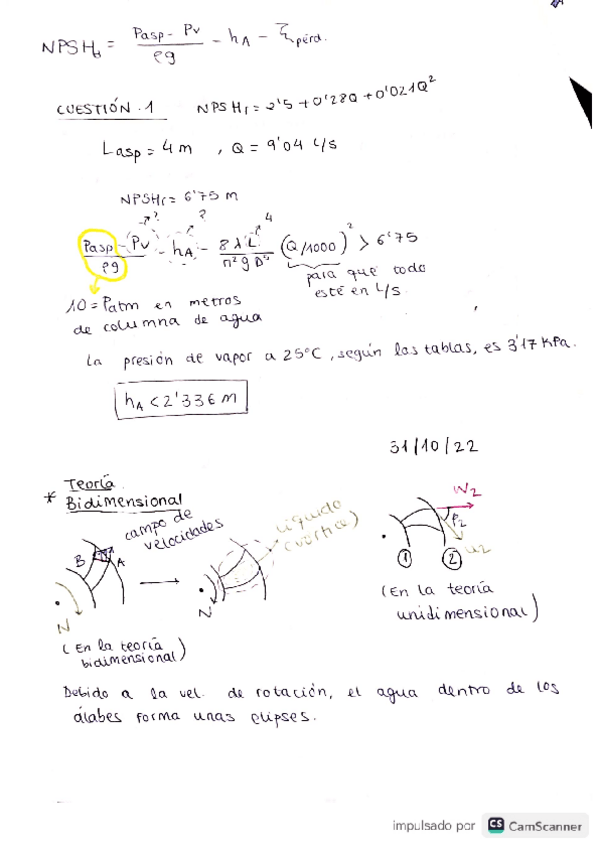 NPSHd = Pasp - Pv / ρg - hA - Σpérd.
CUESTIÓN.1 NPSHr = 2'5 + 0'28Q + 0'021Q²
Lasp = 4 m , Q = 9'04 L/s
NPSHr = 6'75 m
? ? 4
Pasp - Pv / ρg - hA - 8λL / π²gD⁵ (Q/1000)² > 6'75
para que todo
esté en L/s.
10 = Patm en metros
de columna de agua
La presión de vapor a 25°C, según las tablas, es 3'17 kPa.
hA < 2'336 m
31/10/22
* Teoría
Bidimensional
campo de
velocidades
B A
N
(En la teoría
bidimensional)
Líquido
(vórtice)
N
W2
β2
u2
1 2
(En la teoría
unidimensional)
Debido a la vel. de rotación, el agua dentro de los
álabes forma unas elipses.
impulsado por CS CamScanner